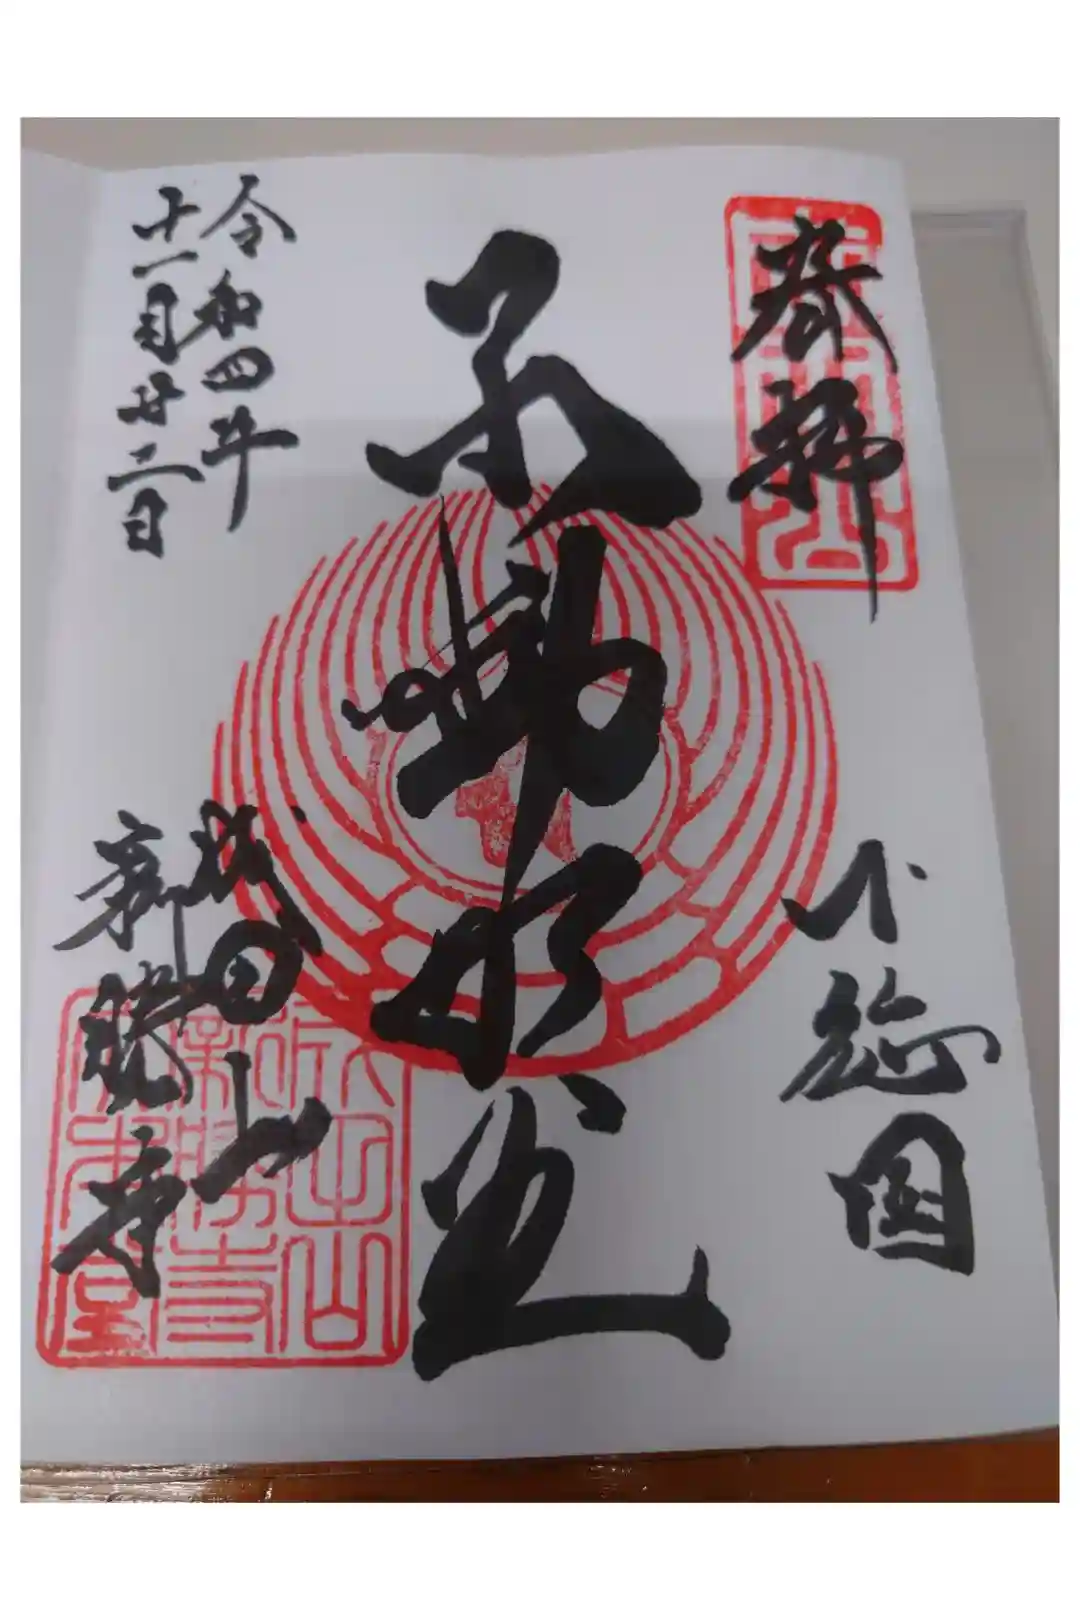 奉拝
下総国
不動明王
令和四年
十一月廿二日
成田山
新勝寺
成田山
新勝寺